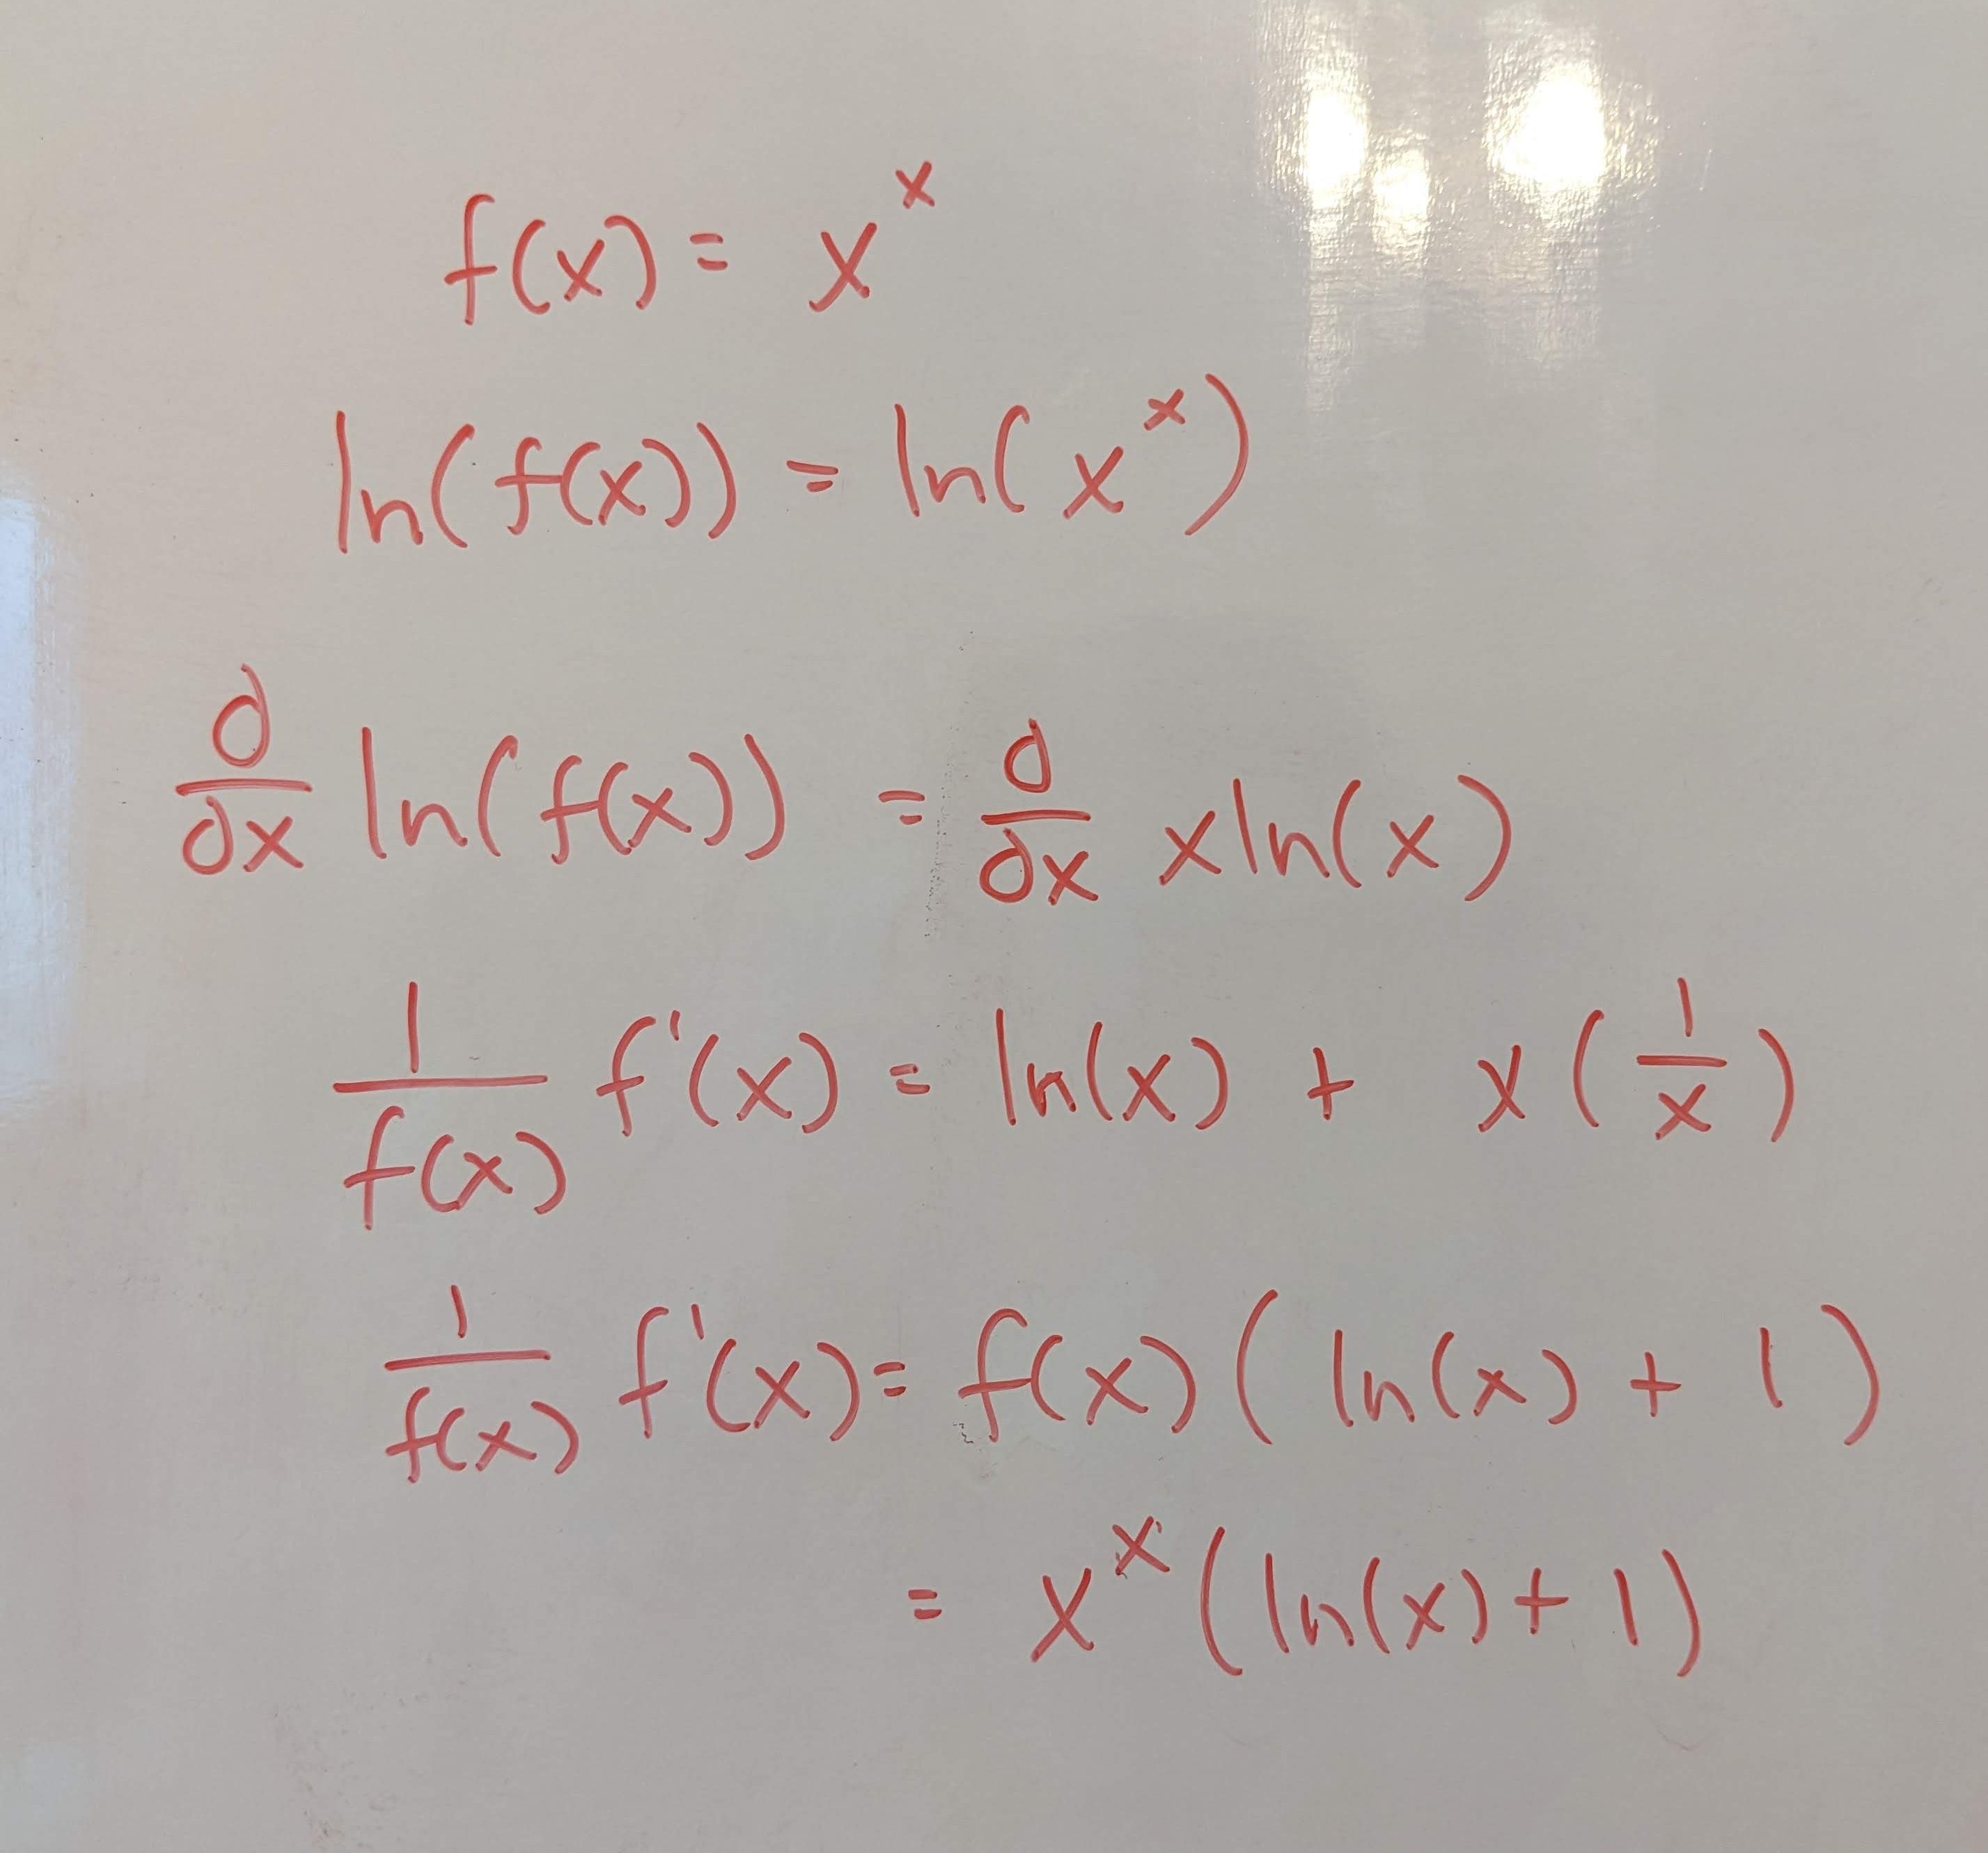 f(x) = x^x
ln(f(x)) = ln(x^x)
d/dx ln(f(x)) = d/dx xln(x)
1/f(x) f'(x) = ln(x) + x(1/x)
1/f(x) f'(x) = f(x)(ln(x) + 1)
= x^x(ln(x) + 1)